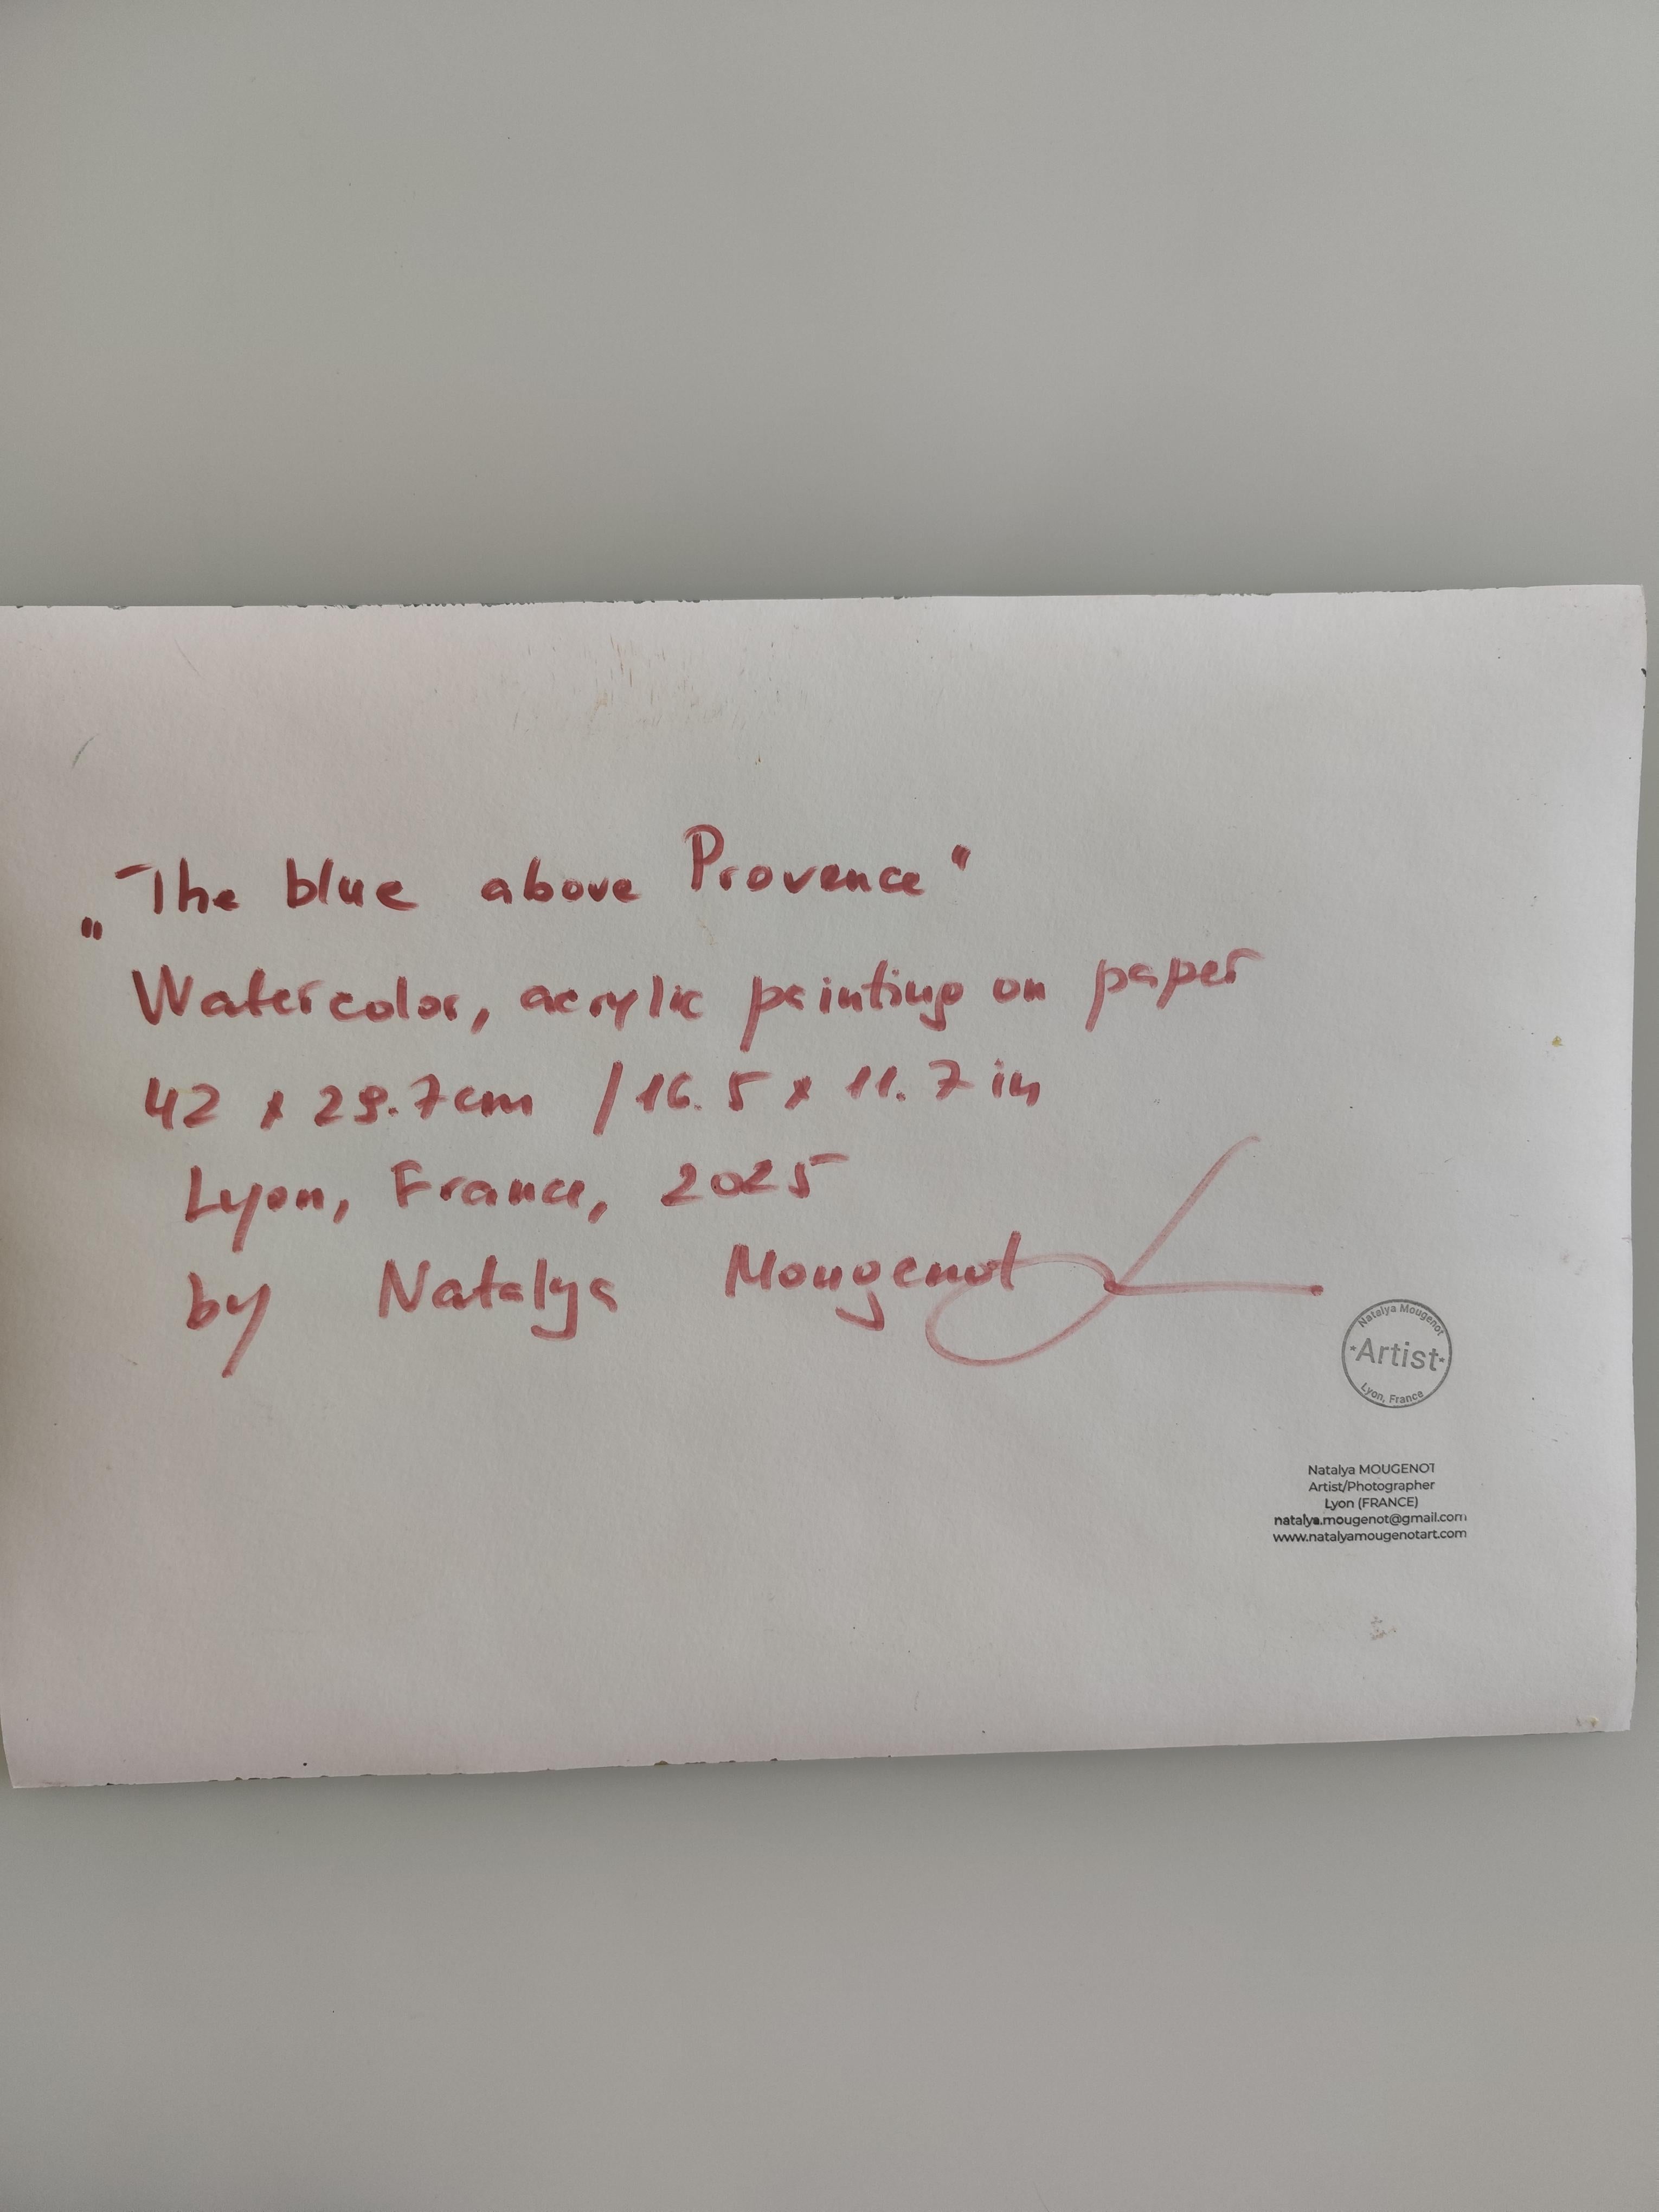 „The blue above Provence"
Watercolor, acrylic painting on paper
42 x 29.7cm / 16.5 x 11.7 in
Lyon, France, 2025
by Natalya Mougenot
Natalya Mougenot
Artist
Lyon, France
Natalya MOUGENOT
Artist/Photographer
Lyon (FRANCE)
natalya.mougenot@gmail.com
www.natalyamougenotart.com